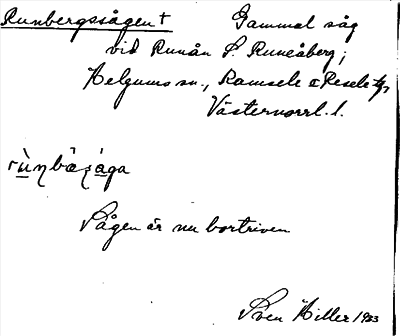 Runbergssågen † Gammal såg
vid Runån S. Runeåberg;
Helgums sn., Ramsele o Resele tg,
Västernorrl. l.
rùŋbæ̀ʒága
Sågen är nu bortriven
Sven Hiller 1933